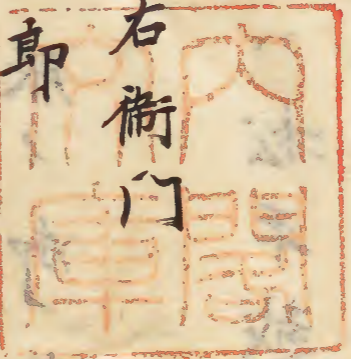 右衛门
郎
内閣
文庫